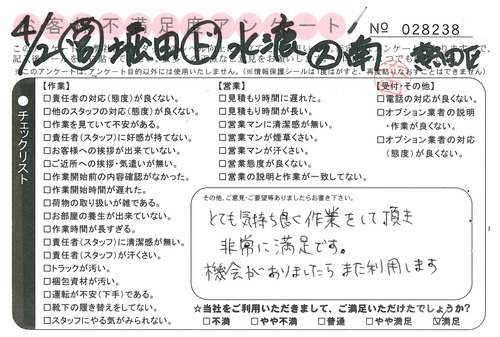 お客様不満足度アンケート
No 028238
4/2 堀田 水濱 南 熱田区
※このアンケートは、アンケート目的以外には使用いたしません。(※情報保護シールは1度はがすと、再度貼りなおすことはできません)
チェックリスト
【作業】
□責任者の対応(態度)が良くない。
□他のスタッフの対応(態度)が良くない。
□作業を見ていて不安がある。
□責任者(スタッフ)に好感が持てない。
□お客様への挨拶が出来ていない。
□ご近所への挨拶・気遣いが無い。
□作業開始前の内容確認がなかった。
□作業開始時間が遅れた。
□荷物の取り扱いが雑である。
□お部屋の養生が出来ていない。
□作業時間が長すぎる。
□責任者(スタッフ)に清潔感が無い。
□責任者(スタッフ)が汗くさい。
□トラックが汚い。
□梱包資材が汚い。
□運転が不安(下手)である。
□靴下の履き替えをしてない。
□スタッフにやる気がみられない。
【営業】
□見積もり時間に遅れた。
□見積もり時間が長い。
□営業マンに清潔感が無い。
□営業マンが煙草くさい。
□営業マンが汗くさい。
□営業態度が良くない。
□営業の説明と作業が一致してない。
【受付・その他】
□電話の対応が良くない。
□オプション業者の説明
・作業が良くない。
□オプション業者の対応
(態度)が良くない。
その他、ご意見・ご要望等ありましたらお書き下さい。
とても気持ち良く作業をして頂き
非常に満足です。
機会がありましたらまた利用します
☆当社をご利用いただきまして、ご満足いただけたでしょうか?
□不満 □やや不満 □普通 □やや満足 ☑満足